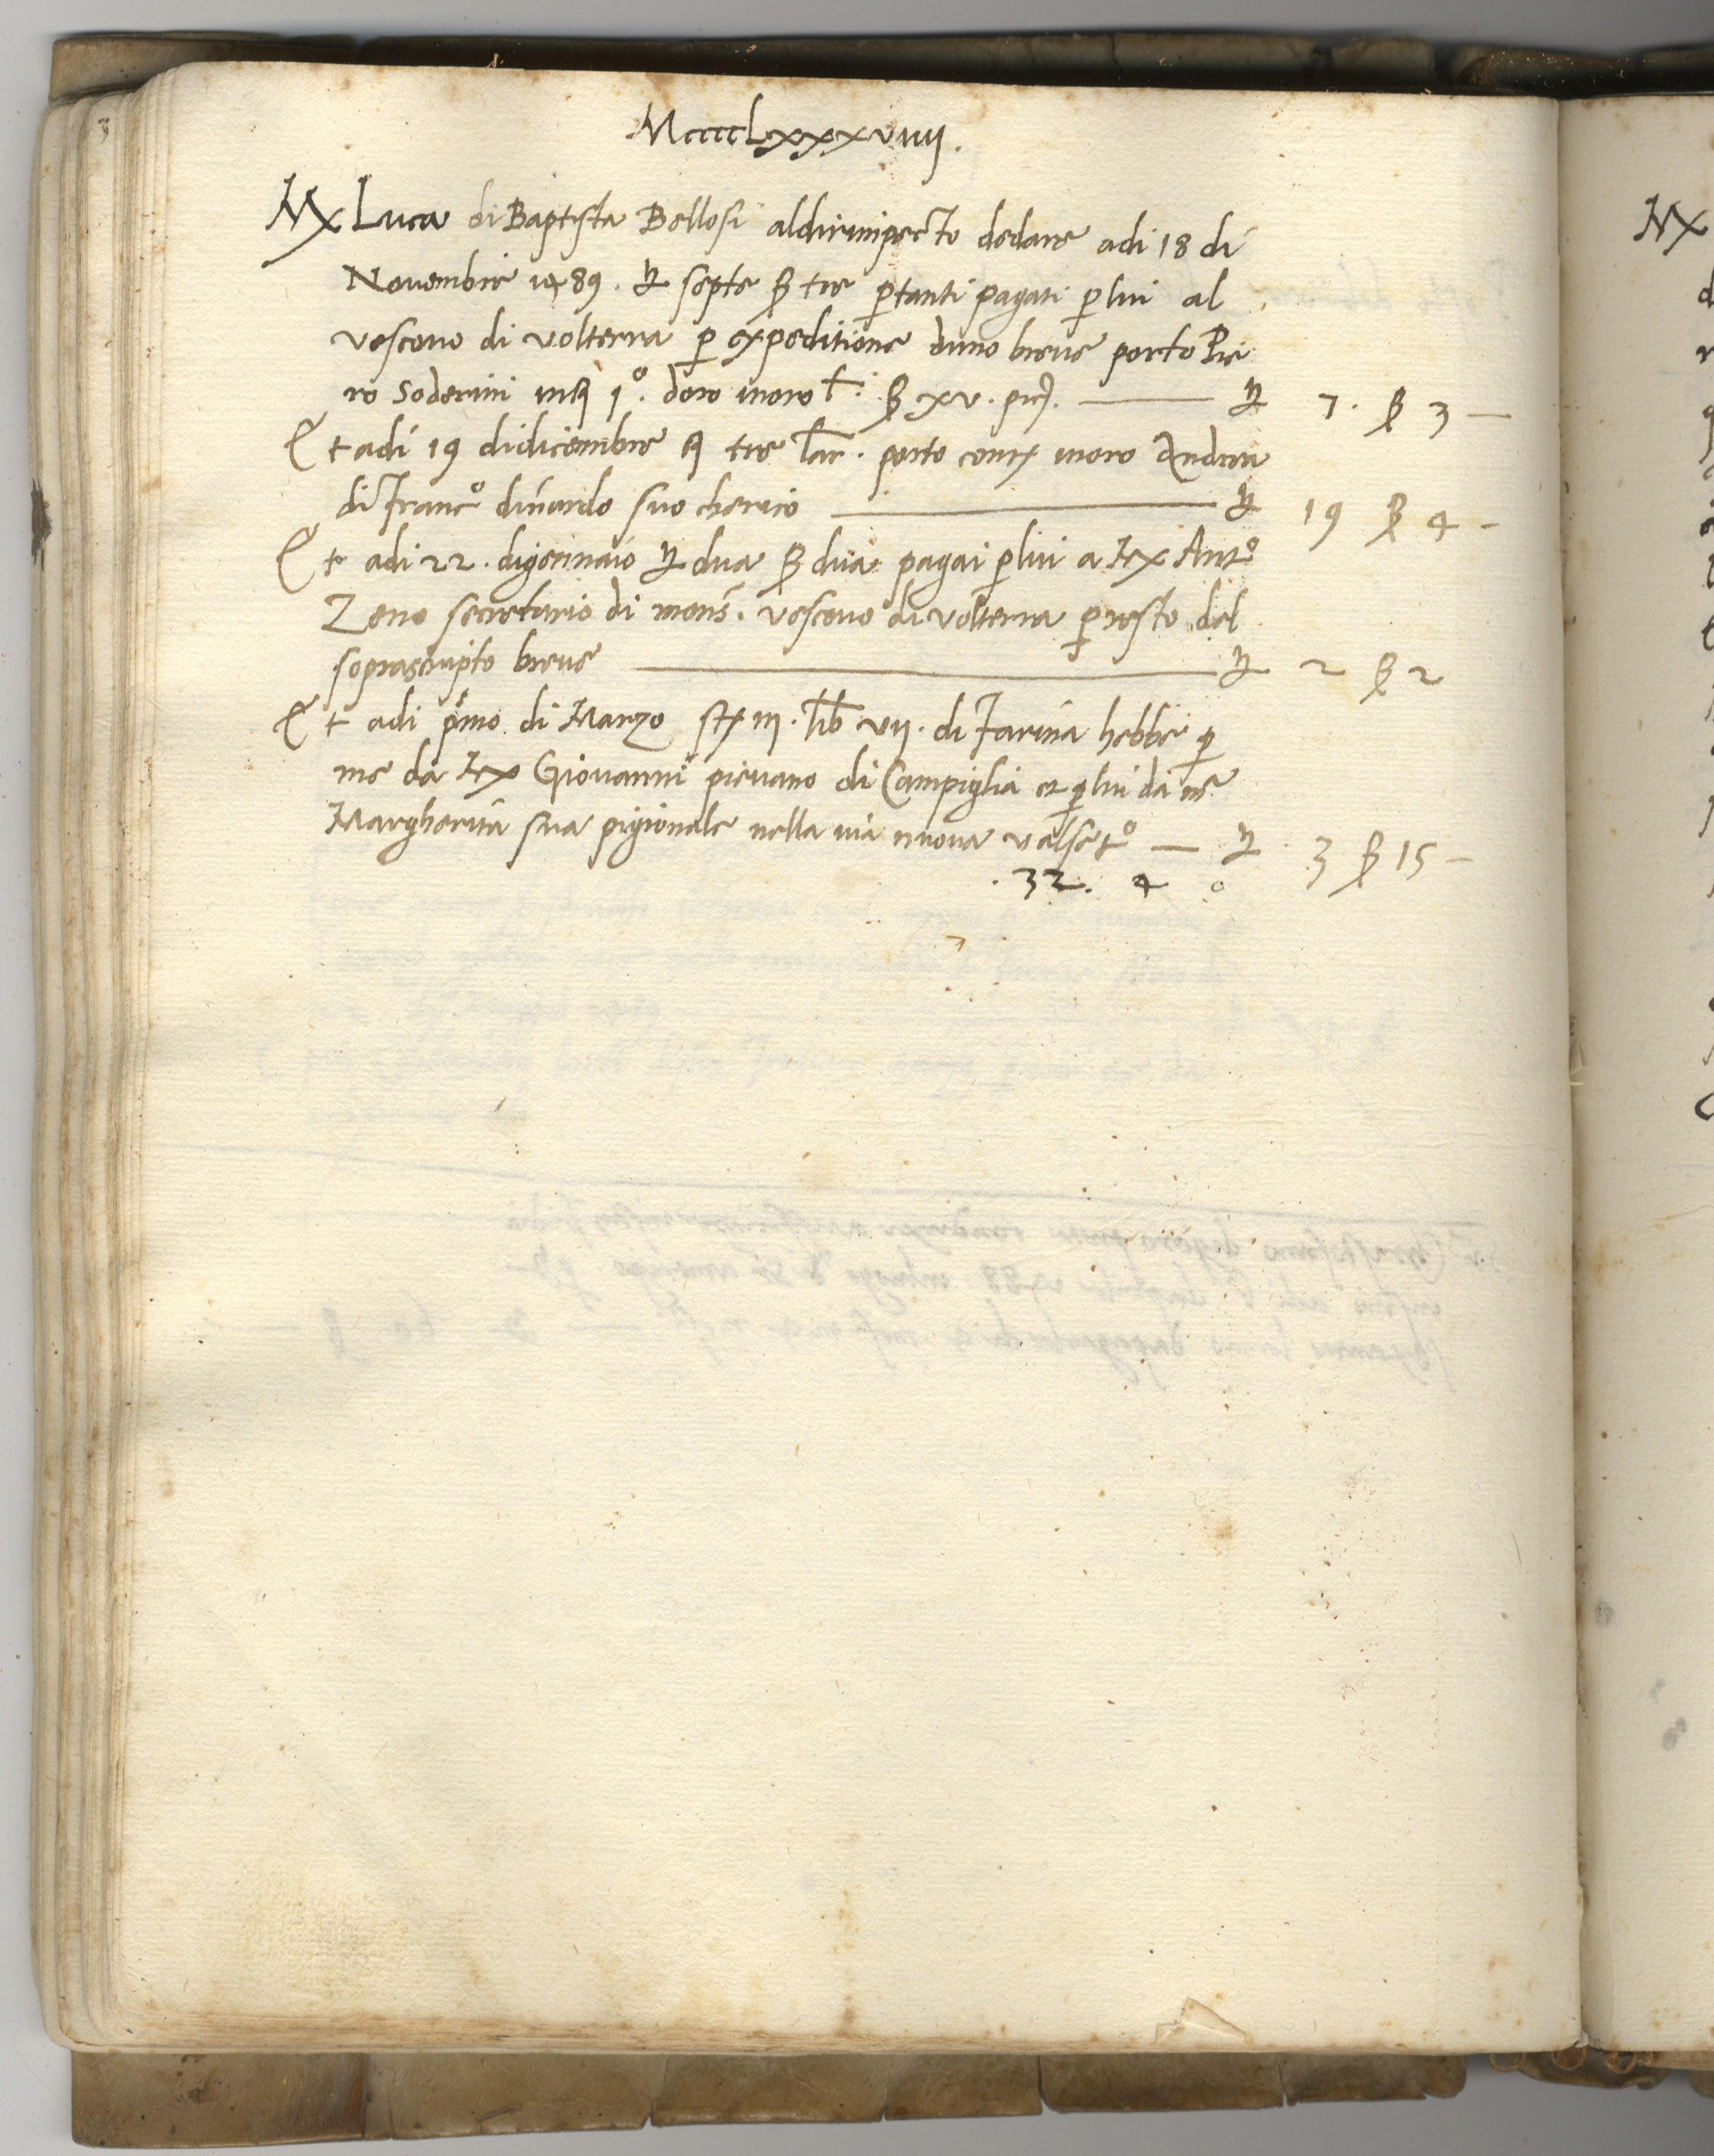 MccccLxxxviiij.
Mx Luca di Baptista Bellosi aldirimpecto dedare adi 18 di
Novembre 1489. ₶ septe ß tre p tanti pagati p lui al
vescovo di volterra p expeditione duno breve porto Pie
ro Soderini in 1º. doro inoro ß xv. picj. — ₶ 7. ß 3 —
Et adi 19 didicembre tre lar. porto contj inoro Andrea
di Francº dinardo suo cherico — ₶ 19 ß 4 -
Et adi 22. digennaio ₶ dua ß dua pagai p lui a Mx Antº
Zeno secretario di mons. vescovo di volterra p resto del
soprascripto breve — ₶ 2 ß 2
Et adi pmo di Marzo stx iij. lib vij. di farina hebbe p
me da Mx Giovanni pievano di Campiglia et p lui da
Margherita sua pigionale nella via nuova — ₶ 3 ß 15 —
. 32. 4 0